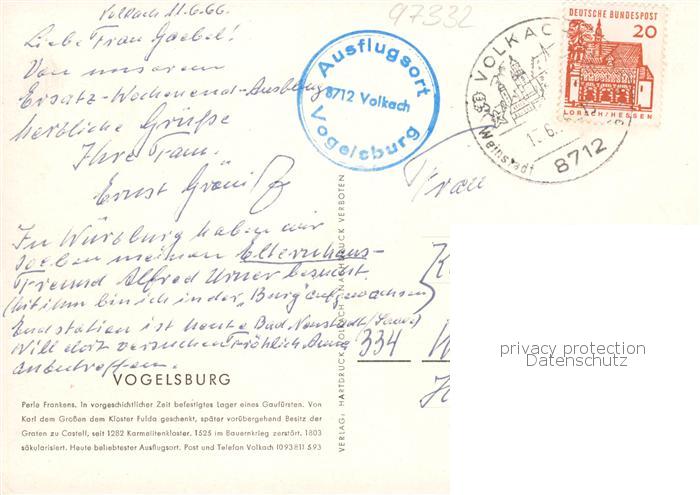 Volkach 11.6.66.
97332
Liebe Frau Goebel!
Von unserem
Ersatz-Wochenend-Ausflug
herbliche Grüße
Ihre Fam.
Ernst
Ausflugsort
8712 Volkach
Vogelsburg
VOLKACH
Weinstadt
8712
DEUTSCHE BUNDESPOST
20
LORSCH/HESSEN
Frau
In Würzburg haben wir
soeben meinen Elternhaus-
Freund Alfred Urner besucht.
(Mit ihm bin ich in der „Burg" aufgewachsen)
Endstation ist heute Bad Neustadt/Saale
Will dort versuchen Fröhlich Anna
anzutreffen.
334
privacy protection
Datenschutz
VOGELSBURG
Perle Frankens. In vorgeschichtlicher Zeit befestigtes Lager eines Gaufürsten. Von
Karl dem Großen dem Kloster Fulda geschenkt, später vorübergehend Besitz der
Grafen zu Castell, seit 1282 Karmelitenkloster. 1525 im Bauernkrieg zerstört. 1803
säkularisiert. Heute beliebtester Ausflugsort. Post und Telefon Volkach (0 93 81) 5 93
VERLAG: HARTDRUCK VOLKACH · NACHDRUCK VERBOTEN